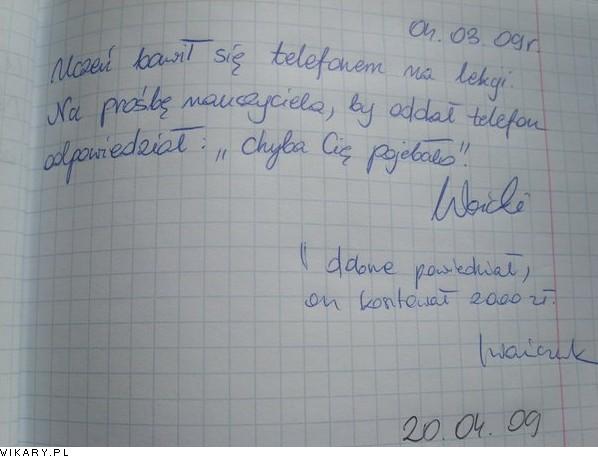 04.03.09r.
Uczeń bawił się telefonem na lekcji.
Na prośbę nauczyciela, by oddał telefon
odpowiedział: „Chyba Cię pojebało".
dobrze powiedział,
on kosztował 2000 zł.
20.04.09
WIKARY.PL